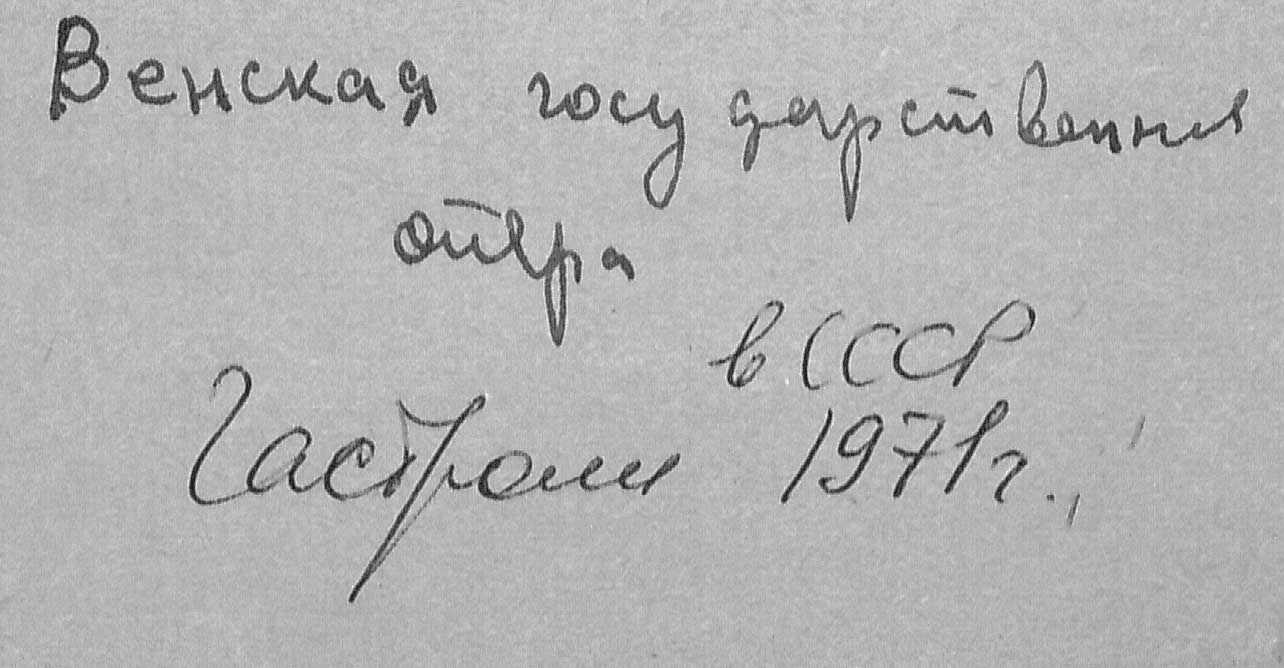 Венская государственная
опера
в СССР
Гастроли 1971г.,